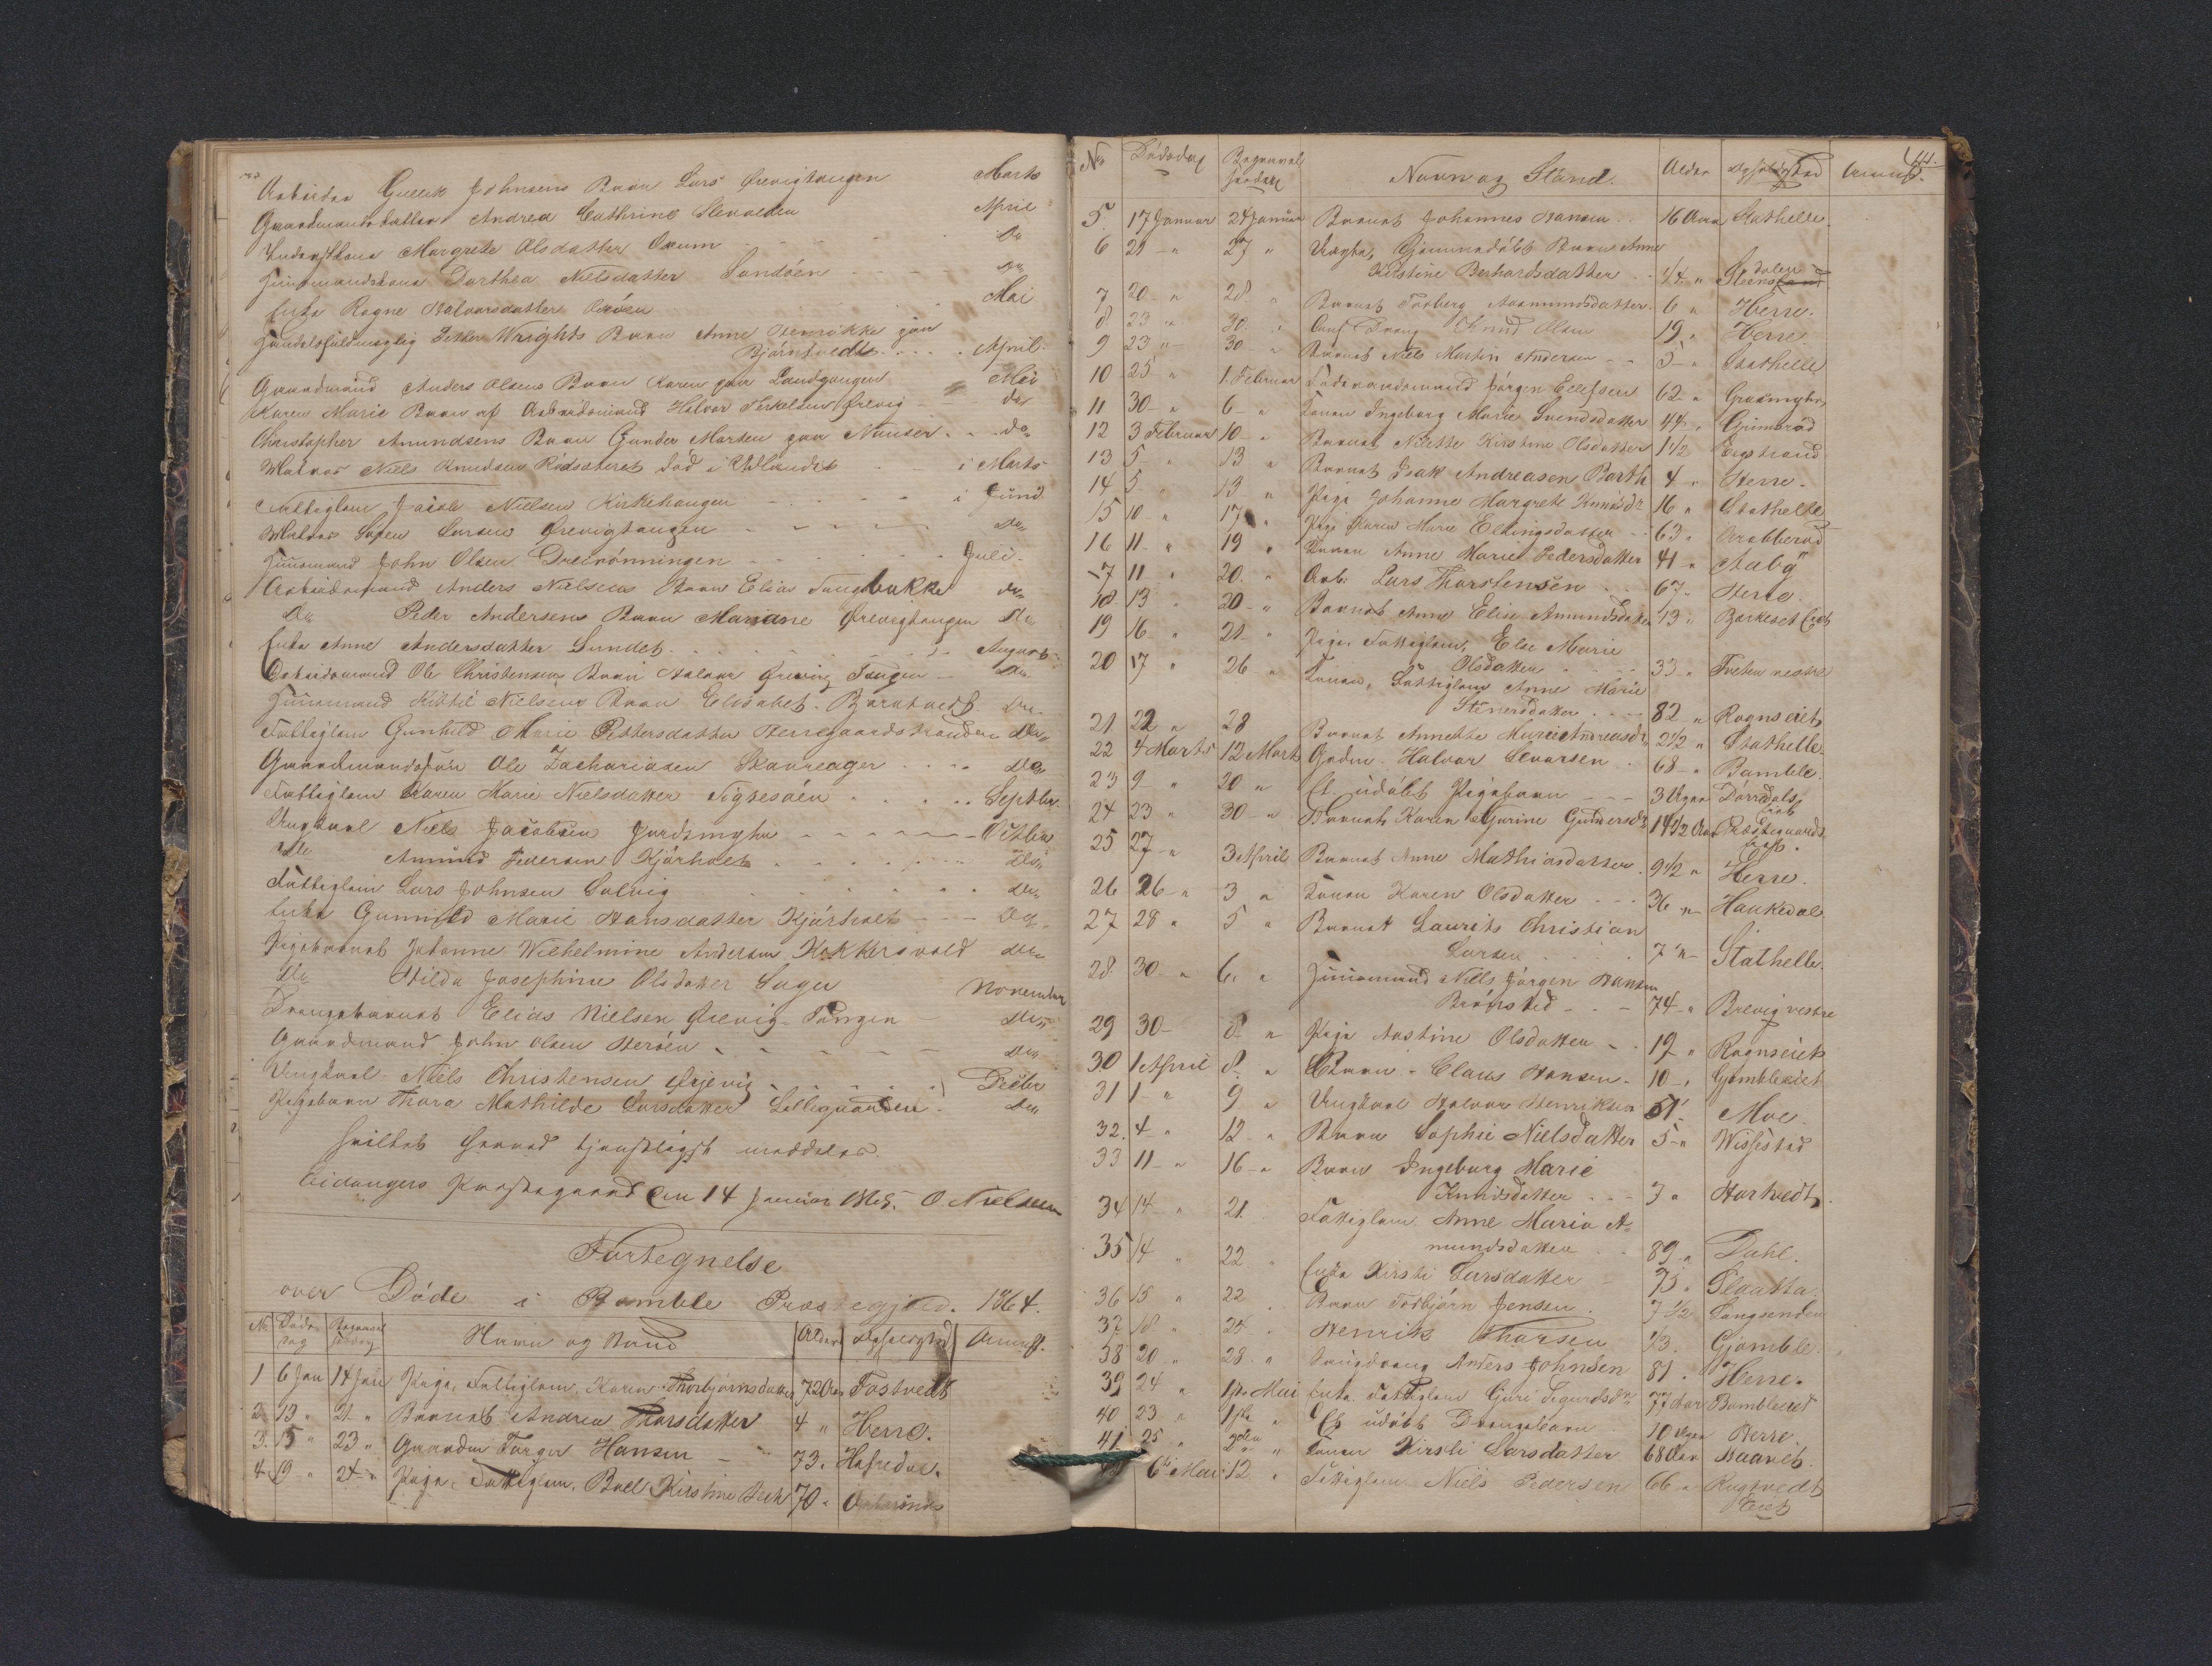 Arbeider Gullik Johnsens Barn Lars Brevigtangen Marts
Gaardmandsdatter Andrea Cathrine Stenvolden April
Inderstkone Margrete Olsdatter Oxum Do
Huusmandskone Dorthea Nielsdatter Sandöen Do
Enke Ragne Halvorsdatter Mai
Handelsfuldmægtig Petter Wrights Barn Anne Henrikke paa
Björntvedt April
Gaardmand Anders Olsens Barn Karen paa Landgangen Mai
Karen Marie Barn af Arbeidsmand Halvor Terkelsen Brevig do
Christopher Amundsens Barn Gunder Marten paa do
Matros Niels Knudsen Rödsæteret död i Udlandet i Marts
Fattiglem Jacob Nielsen Kirkehaugen i Juni
Matros Larsen Brevigtangen Do
Huusmand John Olsen Juli
Arbeidsmand Anders Nielsens Barn Elias Do
Do Peder Andersens Barn Mariane Brevigtangen Do
Enke Anne Andersdatter Sundet August
Arbeidsmand Ole Christensens Barn Halvor Brevig Tangen Do
Huusmand Kittil Nielsens Barn Elisabet Do
Fattiglem Gunhild Marie Pettersdatter Herregaardstranden Do
Gaardmandssön Ole Zachariasen Skavreager do
Fattiglem Karen Marie Nielsdatter Septbr
Ungkarl Niels Jacobsen Octbr
do Amund Pedersen Kjörholt Do
Fattiglem Lars Johnsen Do
Enke Gunild Marie Hansdatter Kjörholt Do
Pigebarnet Johanne Wilhelmine Andersen Kokkersvold do
do Hilda Josephine Olsdatter November
Drengebarnet Elias Nielsen Brevig Tangen do
Gaardmand John Olsen Heröen do
Ungkarl Niels Christensen Decbr
Pigebarn Thora Mathilde Larsdatter Lillegaarden do
hvilket herved tjenstligst meddeles.
Eidangers Præstegaard den 14 Januar O. Nielsen
Fortegnelse
over Döde i Bamble Præstegjeld. 1864.
No Döds dag Begravelses dag Navn og Stand Alder Opholdssted Anm.
1 6 Jan 14 Jan Pige, Fattiglem, Karen Thorbjörnsdatter 72 Aar Tostvedt
2 13 " 21 " Barnet Andrea Thorsdatter 4 " Herre.
3. 15 " 23 " Gaardm Hansen 73. Hafredal.
4. 19 " 24 " Pige, Fattiglem, Boel Kirstine Bech 70 "
111.
No Dödsdag Begravelsesdag Navn og Stand. Alder Opholdssted Anm.
5. 17 Januar 24 Januar Barnet Johannes Hansen 16 Aar Stathelle
6 21 " 27 " Barn Anne
Kirstine Berhardsdatter 1/4 "
7 20 " 28 " Barnet Torberg Aasmundsdatter 6 " Herre.
8 23 " 30 " Knud Olsen 19 " Herre.
9 23 " 30 " Barnet Niels Martin Andersen 5 " Stathelle
10 25 " 1. Februar Föderaadsmand Jörgen Ellefsen 62 "
11 30 " 6 " Konen Ingeborg Marie Svendsdatter 44 " Gjömeröd
12 3 Februar 10 " Barnet Nilette Kirstine Olsdatter 1 1/2 Eegstrand
13 5 " 13 " Barnet Isak Andreasen Barth 4 " Herre.
14 5 " 13 " Pige Johanne Margrete Knudsdr 16 " Stathelle
15 10 " 17 " Pige Karen Marie Ellingsdatter 63 "
16 11 " 19 " Konen Anne Marie Pedersdatter 41 " Aaby
17 11 " 20 " Arb. Lars Thorstensen 67 " Herre.
18 13 " 20 " Barnet Anne Elise Amundsdatter 13 "
19 16 " 21 " Pige, Fattiglem, Else Marie
Olsdatter 33 " Tveten vestre
20 17 " 26 " Konen, Fattiglem Anne Marie
Stenersdatter 82 " Rognseiet
21 22 " 28 Barnet Annette Marie Andreasdr 2 1/2 " Stathelle
22 4 Marts 12 Marts Gaardm. Halvor Sevarsen 68 " Bamble.
23 9 " 20 " Et udöbt Pigebarn 3 Uger
24 23 " 30 " Barnet Karen Gurine Gundersdr 14 1/2 Aar Præstegaards
25 27 " 3 April Barnet Anne Mathiasdatter 9 1/2 " Herre.
26 26 " 3 " Konen Karen Olsdatter 36 " Haukedal
27 28 " 5 " Barnet Laurits Christian
Larsen 7 " Stathelle.
28 30 " 6 " Huusmand Niels Jörgen Hansen
Brönsted 74 " Brevig vestre
29 30 " 8 " Pige Aastine Olsdatter 19 " Rognseiet
30 1 April 8 " Barn Claus Hansen 10 " Gjömbleeiet
31 1 " 9 " Ungkarl Halvor Henriksen 51 Moe.
32. 4 " 12 " Barn Sophie Nielsdatter 5 "
33 11 " 16 " Barn Ingeborg Marie
Knudsdatter 3 " Hartvedt
34 14 " 21 Fattiglem Anne Maria A-
mundsdatter 89 " Dahl.
35 14 " 22 Enke Kirsti Larsdatter 75 "
36 15 " 22 Barn Torbjörn Jensen 7 1/2 Langsenden
37 18 " 24 Henrik Thorsen 1/3 Gjömble
38 20 " 28 " Anders Johnsen 81 " Herre.
39 24 " 1ste Mai Enke Fattiglem Guri Sigurdsdr 77 Aar Bambleeiet
40 23 " 1ste " Et udöbt Drengebarn 10 Uger Herre.
41 25 " 2den " Konen Kirsti Larsdatter 68 Aar
6te Mai 12 " Fattiglem Niels Pedersen 66 " Rugtvedt
Eiet